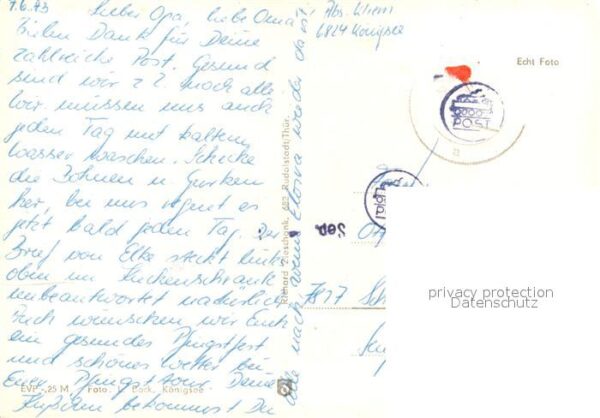 7.6.73
Lieber Opa, liebe Oma!
Vielen Dank für Deine
zahlreiche Post. Gesund
sind wir z Z. noch alle
Wir müssen uns auch
jeden Tag mit kaltem
Wasser waschen. Schicke
die Bohnen u. Gurken
her, bei uns regnet es
jetzt bald jeden Tag. Der
Brief von Elke steckt links
oben im Küchenschrank
unbeantwortet natürlich
Euch wünschen wir Euch
ein gesundes Pfingstfest
und schönes Wetter bei
Eurer Pfingsttour. Deine
bekommst Du
alle nach, wenn wieder da ist
Abs. Kliem
6824 Königsee
Echt Foto
POST
Richard Zieschank, 682 Rudolstadt/Thür.
Sep.
7877
EVP -,25 M Foto: Königsee
privacy protection
Datenschutz